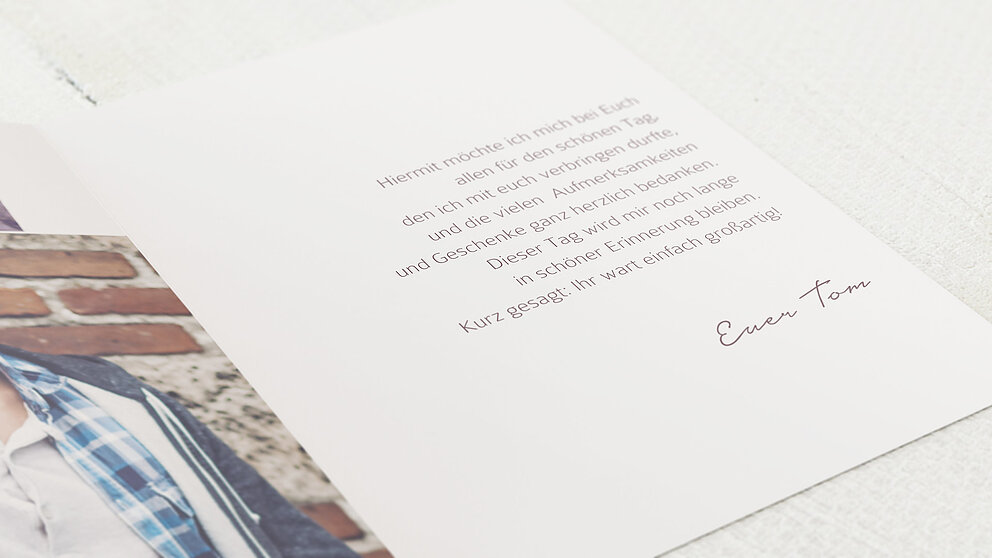 Hiermit möchte ich mich bei Euch
allen für den schönen Tag,
den ich mit euch verbringen durfte,
und die vielen Aufmerksamkeiten
und Geschenke ganz herzlich bedanken.
Dieser Tag wird mir noch lange
in schöner Erinnerung bleiben.
Kurz gesagt: Ihr wart einfach großartig!
Euer Tom